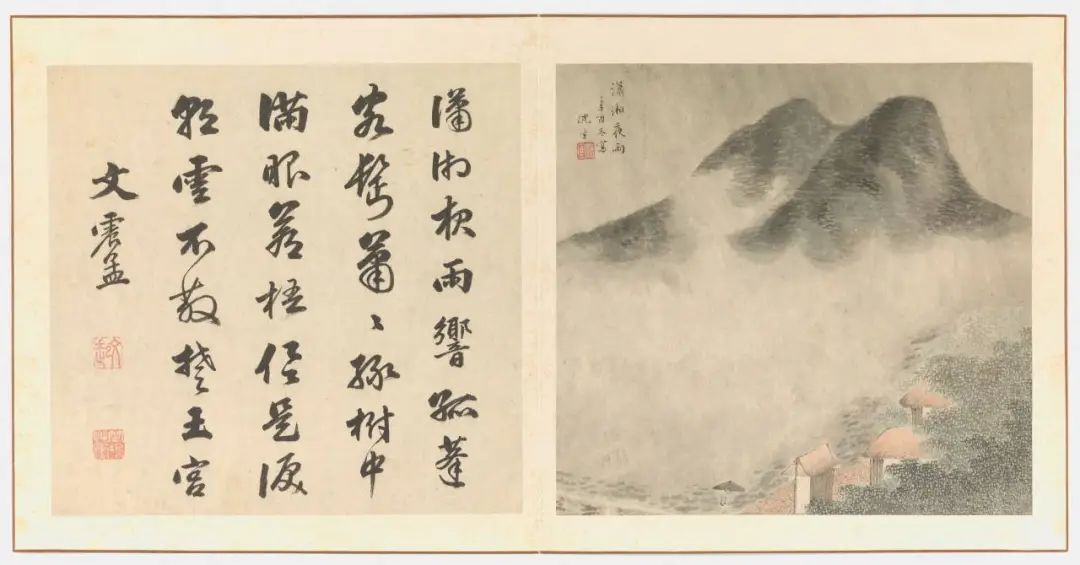 瀟湘夜雨
辛酉冬寫
沈宣
瀟湘夜雨響孤蓬
客鬢蕭〻綠樹中
滿眼蒼梧是淚
朝雲不散楚王宮
文震孟